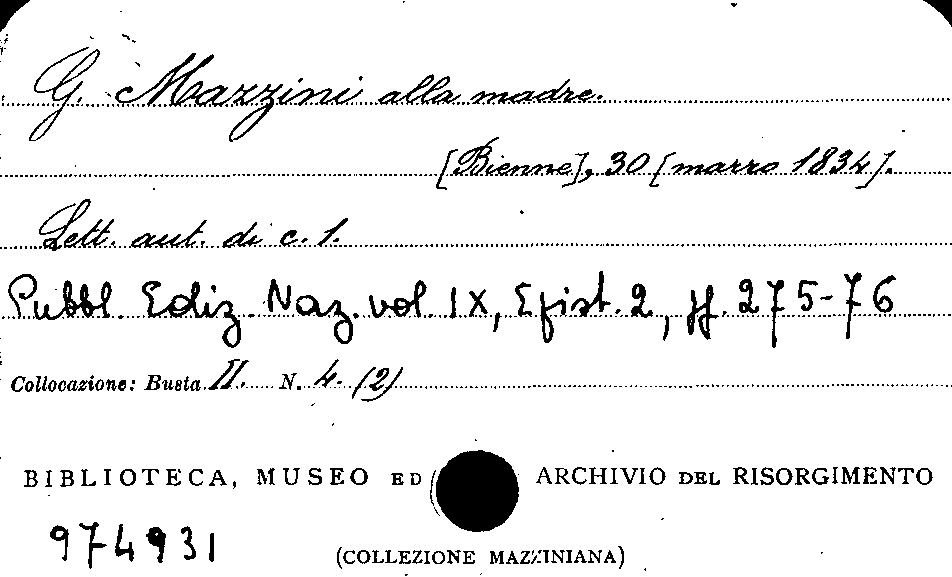 G. Mazzini alla madre.
[Bienne], 30 [marzo 1834].
Lett. aut. di c. 1.
Pubbl. Ediz. Naz. vol. IX, Epist. 2, pp. 275-76
Collocazione: Busta II. N. 4. (2)
BIBLIOTECA, MUSEO ED ARCHIVIO DEL RISORGIMENTO
974931
(COLLEZIONE MAZZINIANA)